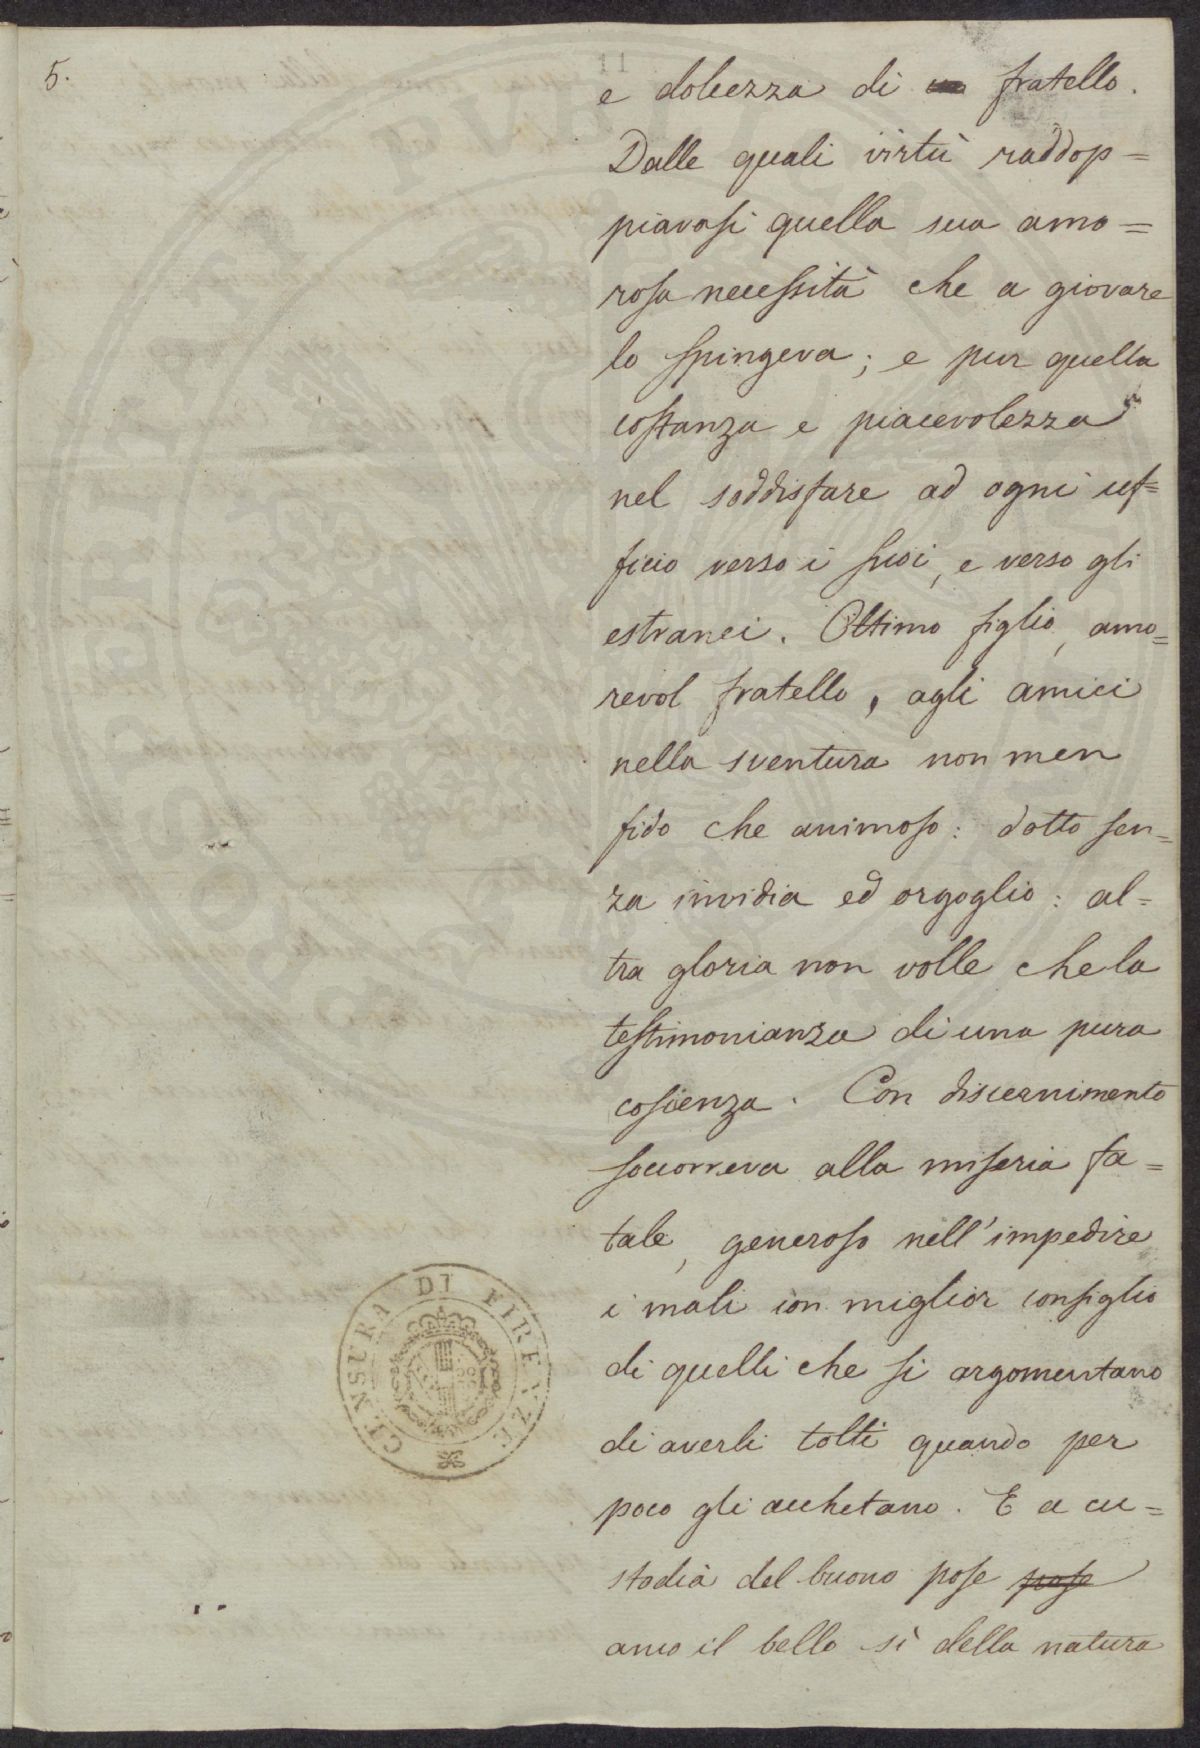 5.
11
e dolcezza di un fratello.
Dalle quali virtù raddop=
piavasi quella sua amo=
rosa necessità che a giovare
lo spingeva; e pur quella
costanza e piacevolezza
nel soddisfare ad ogni uf=
ficio verso i suoi, e verso gli
estranei. Ottimo figlio, amo=
revol fratello, agli amici
nella sventura non men
fido che animoso: dotto sen=
za invidia ed orgoglio: al=
tra gloria non volle che la
testimonianza di una pura
coscienza. Con discernimento
soccorreva alla miseria fa=
tale, generoso nell'impedire
i mali con miglior consiglio
di quelli che si argomentano
di averli tolti quando per
poco gli acchetano. E a cu=
stodia del buono pose pose
anco il bello sì della natura
CENSURA DI FIRENZE